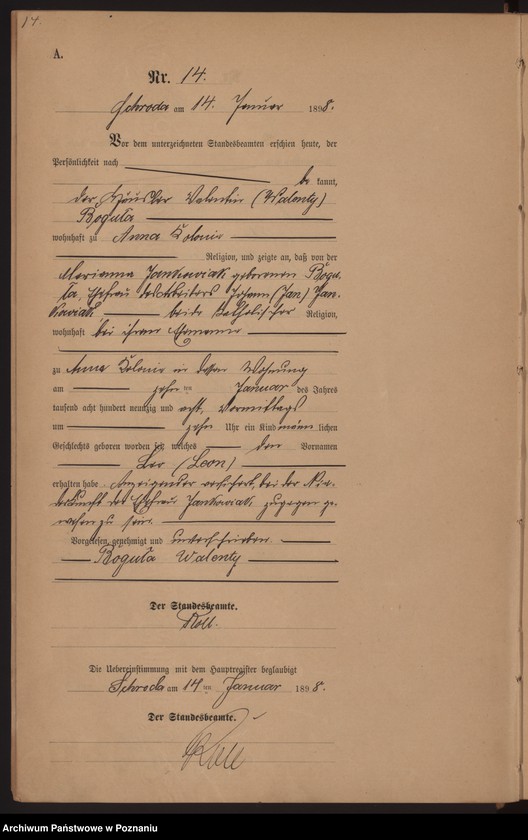 14.
A.
Nr. 14.
Schroda am 14. Januar 1898.
Vor dem unterzeichneten Standesbeamten erschien heute, der
Persönlichkeit nach
be kannt,
der Häusler Valentin (Walenty)
Roguła
wohnhaft zu Anna Kolonie
Religion, und zeigte an, daß von der
Marianna Jankowiak geborenen Rogu-
ła, Ehefrau des Arbeiters Johann (Jan) Jan-
kowiak beide katholischer Religion,
wohnhaft bei ihrem Ehemanne
zu Anna Kolonie in dessen Wohnung
am zehn ten Januar des Jahres
tausend acht hundert neunzig und acht, Vormittags
um zehn Uhr ein Kind männ lichen
Geschlechts geboren worden sei, welches den Vornamen
Leo (Leon)
erhalten habe. Anzeigender versichert, bei der Nie-
derkunft der Ehefrau Jankowiak zugegen ge-
wesen zu sein.
Vorgelesen, genehmigt und unterschrieben
Roguła Walenty
Der Standesbeamte.
Roll.
Die Uebereinstimmung mit dem Hauptregister beglaubigt
Schroda am 14 ten Januar 1898.
Der Standesbeamte.
Roll
Archiwum Państwowe w Poznaniu